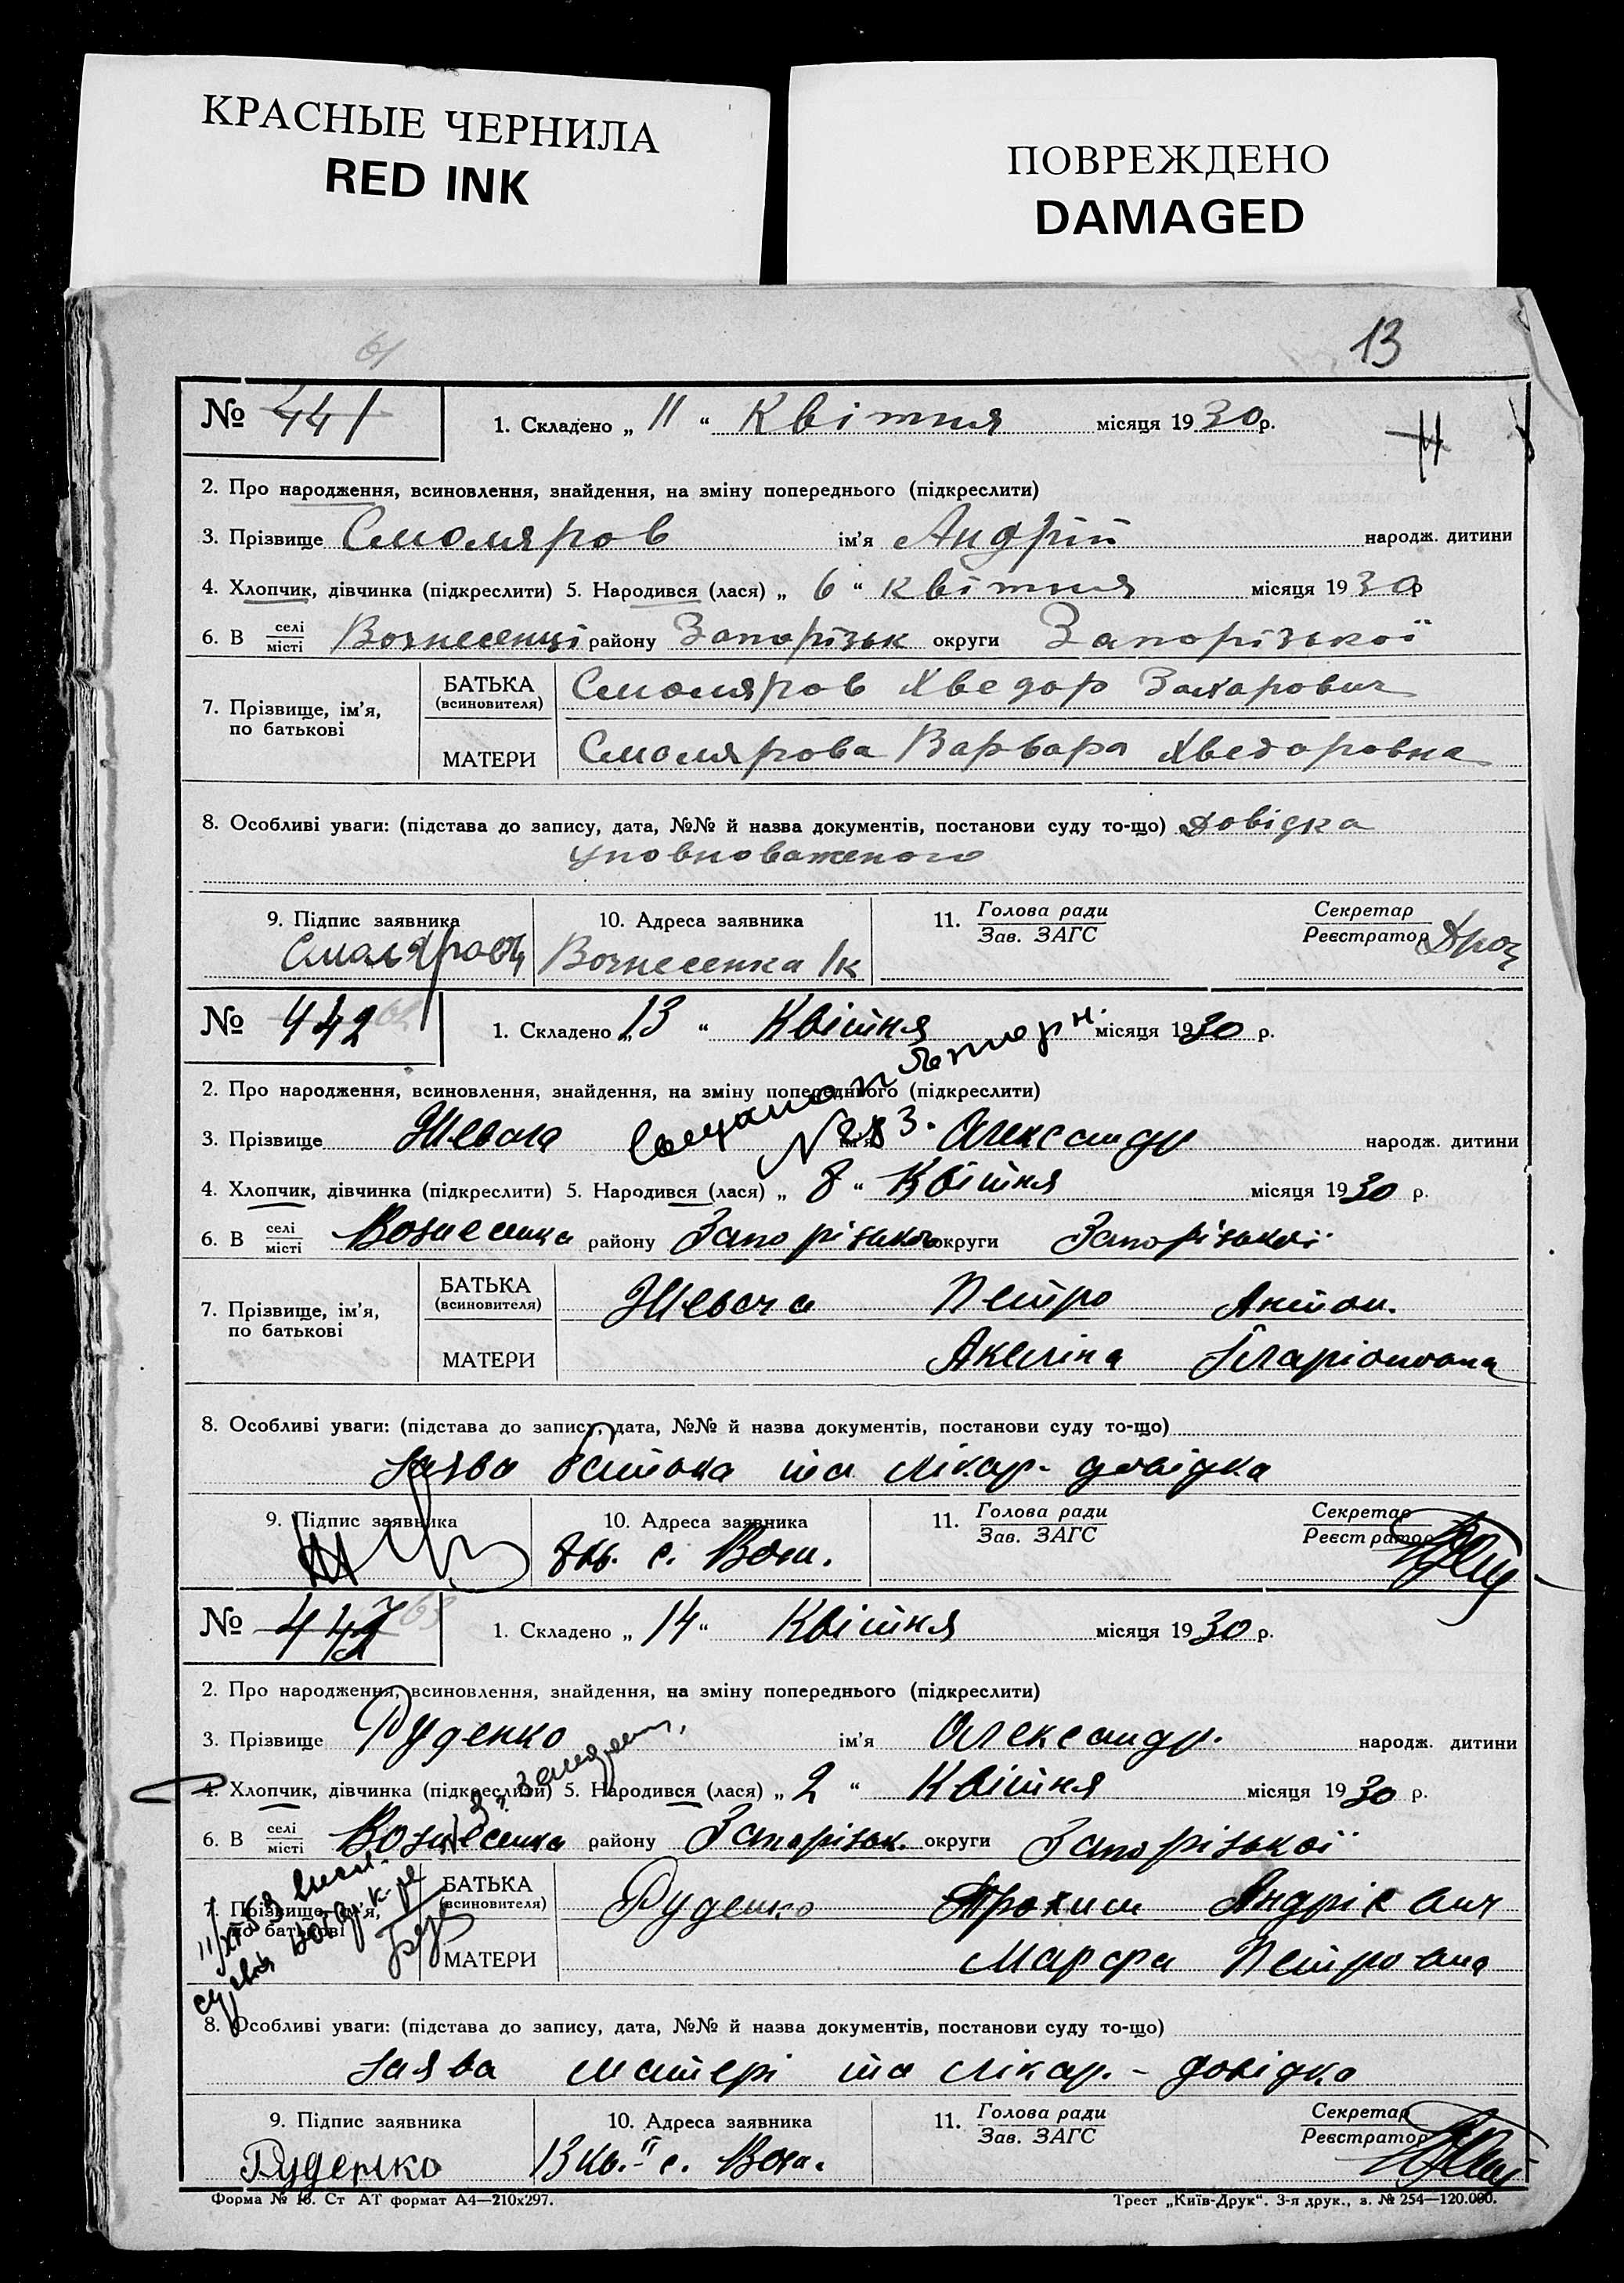 КРАСНЫЕ ЧЕРНИЛА
RED INK
ПОВРЕЖДЕНО
DAMAGED
61
13
№ 441 1. Складено „ 11 “ Квітня місяця 1930р.
2. Про народження, всиновлення, знайдення, на зміну попереднього (підкреслити)
3. Прізвище Смоляров ім'я Андрій народж. дитини
4. Хлопчик, дівчинка (підкреслити) 5. Народився (лася) „ 6 “ квітня місяця 1930р
6. В селі місті Вознесенці району Запорізьк округи Запорізької
7. Прізвище, ім'я, по батькові
БАТЬКА (всиновителя) Смоляров Хведор Захарович
МАТЕРИ Смолярова Варвара Хведоровна
8. Особливі уваги: (підстава до запису, дата, №№ й назва документів, постанови суду то-що) Довідка
уповноваженого
9. Підпис заявника 10. Адреса заявника 11. Голова ради Зав. ЗАГС Секретар Реєстратор
Вознесенка 1к
№ 442 62 1. Складено „ 13 “ Квітня місяця 1930 р.
2. Про народження, всиновлення, знайдення, на зміну попереднього (підкреслити)
3. Прізвище Жевага ім'я Олександр народж. дитини
4. Хлопчик, дівчинка (підкреслити) 5. Народився (лася) „ 8 “ Квітня місяця 1930 р.
6. В селі місті Вознесенка району Запорізького округи Запорізької
7. Прізвище, ім'я, по батькові
БАТЬКА (всиновителя) Петро Антон.
МАТЕРИ Акиліна Іларіоновна
8. Особливі уваги: (підстава до запису, дата, №№ й назва документів, постанови суду то-що)
Заява батька та лікар- довідка
9. Підпис заявника 10. Адреса заявника 11. Голова ради Зав. ЗАГС Секретар Реєстратор
8 кв. с. Возн.
№ 443 63 1. Складено „ 14 “ Квітня місяця 1930 р.
2. Про народження, всиновлення, знайдення, на зміну попереднього (підкреслити)
3. Прізвище Руденко ім'я Олександр. народж. дитини
4. Хлопчик, дівчинка (підкреслити) 5. Народився (лася) „ 2 “ Квітня місяця 1930 р.
6. В селі місті Вознесенка району Запорізьк. округи Запорізької
7. Прізвище, ім'я, по батькові
БАТЬКА (всиновителя) Руденко Трохим Андрієвич
МАТЕРИ Марфа Петровна
8. Особливі уваги: (підстава до запису, дата, №№ й назва документів, постанови суду то-що)
Заява матері та лікар.- довідка
9. Підпис заявника 10. Адреса заявника 11. Голова ради Зав. ЗАГС Секретар Реєстратор
Руденко 13 кв. с. Возн.
Форма № 16. Ст АТ формат А4—210х297. Трест „Київ-Друк“. 3-я друк., з. № 254—120.000.